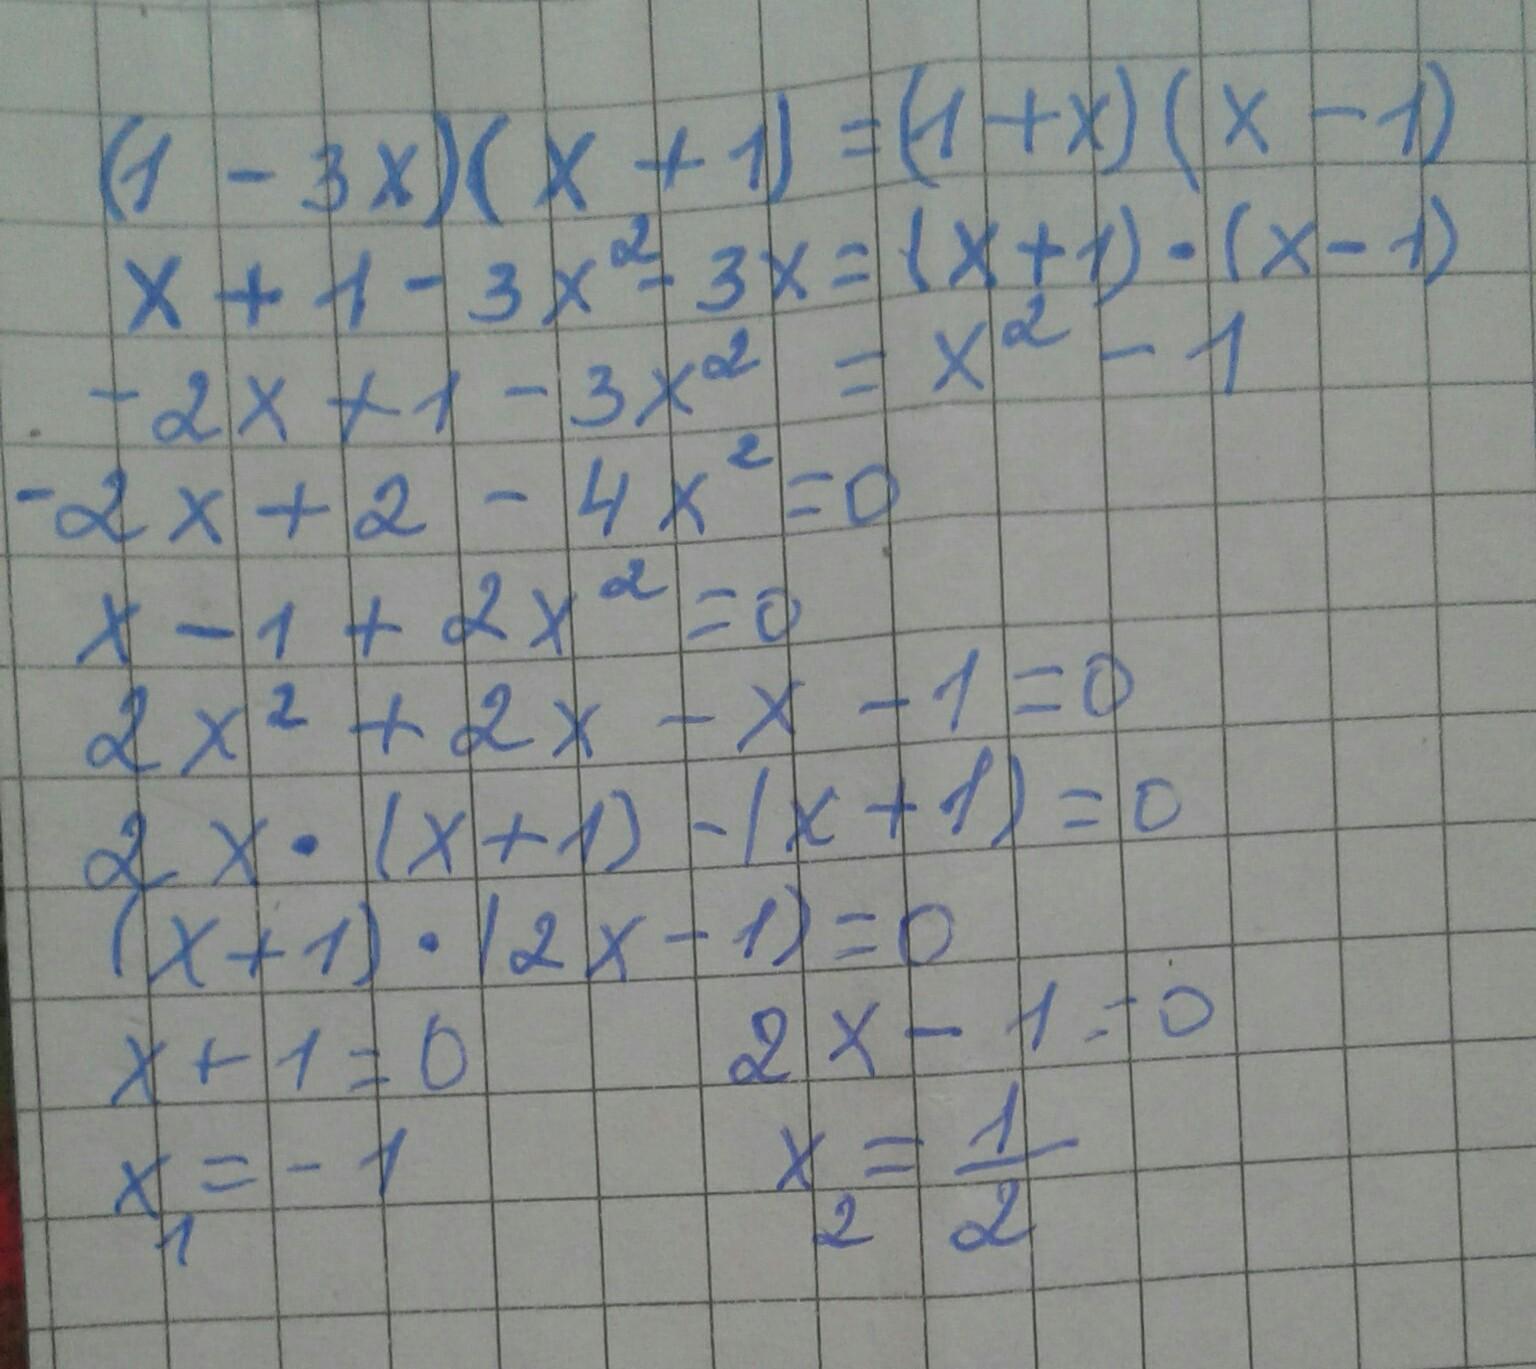 (1 - 3x)(x + 1) = (1 + x)(x - 1)
x + 1 - 3x² - 3x = (x + 1) · (x - 1)
-2x + 1 - 3x² = x² - 1
-2x + 2 - 4x² = 0
x - 1 + 2x² = 0
2x² + 2x - x - 1 = 0
2x · (x + 1) - (x + 1) = 0
(x + 1) · (2x - 1) = 0
x + 1 = 0 2x - 1 = 0
x₁ = -1 x₂ = 1/2